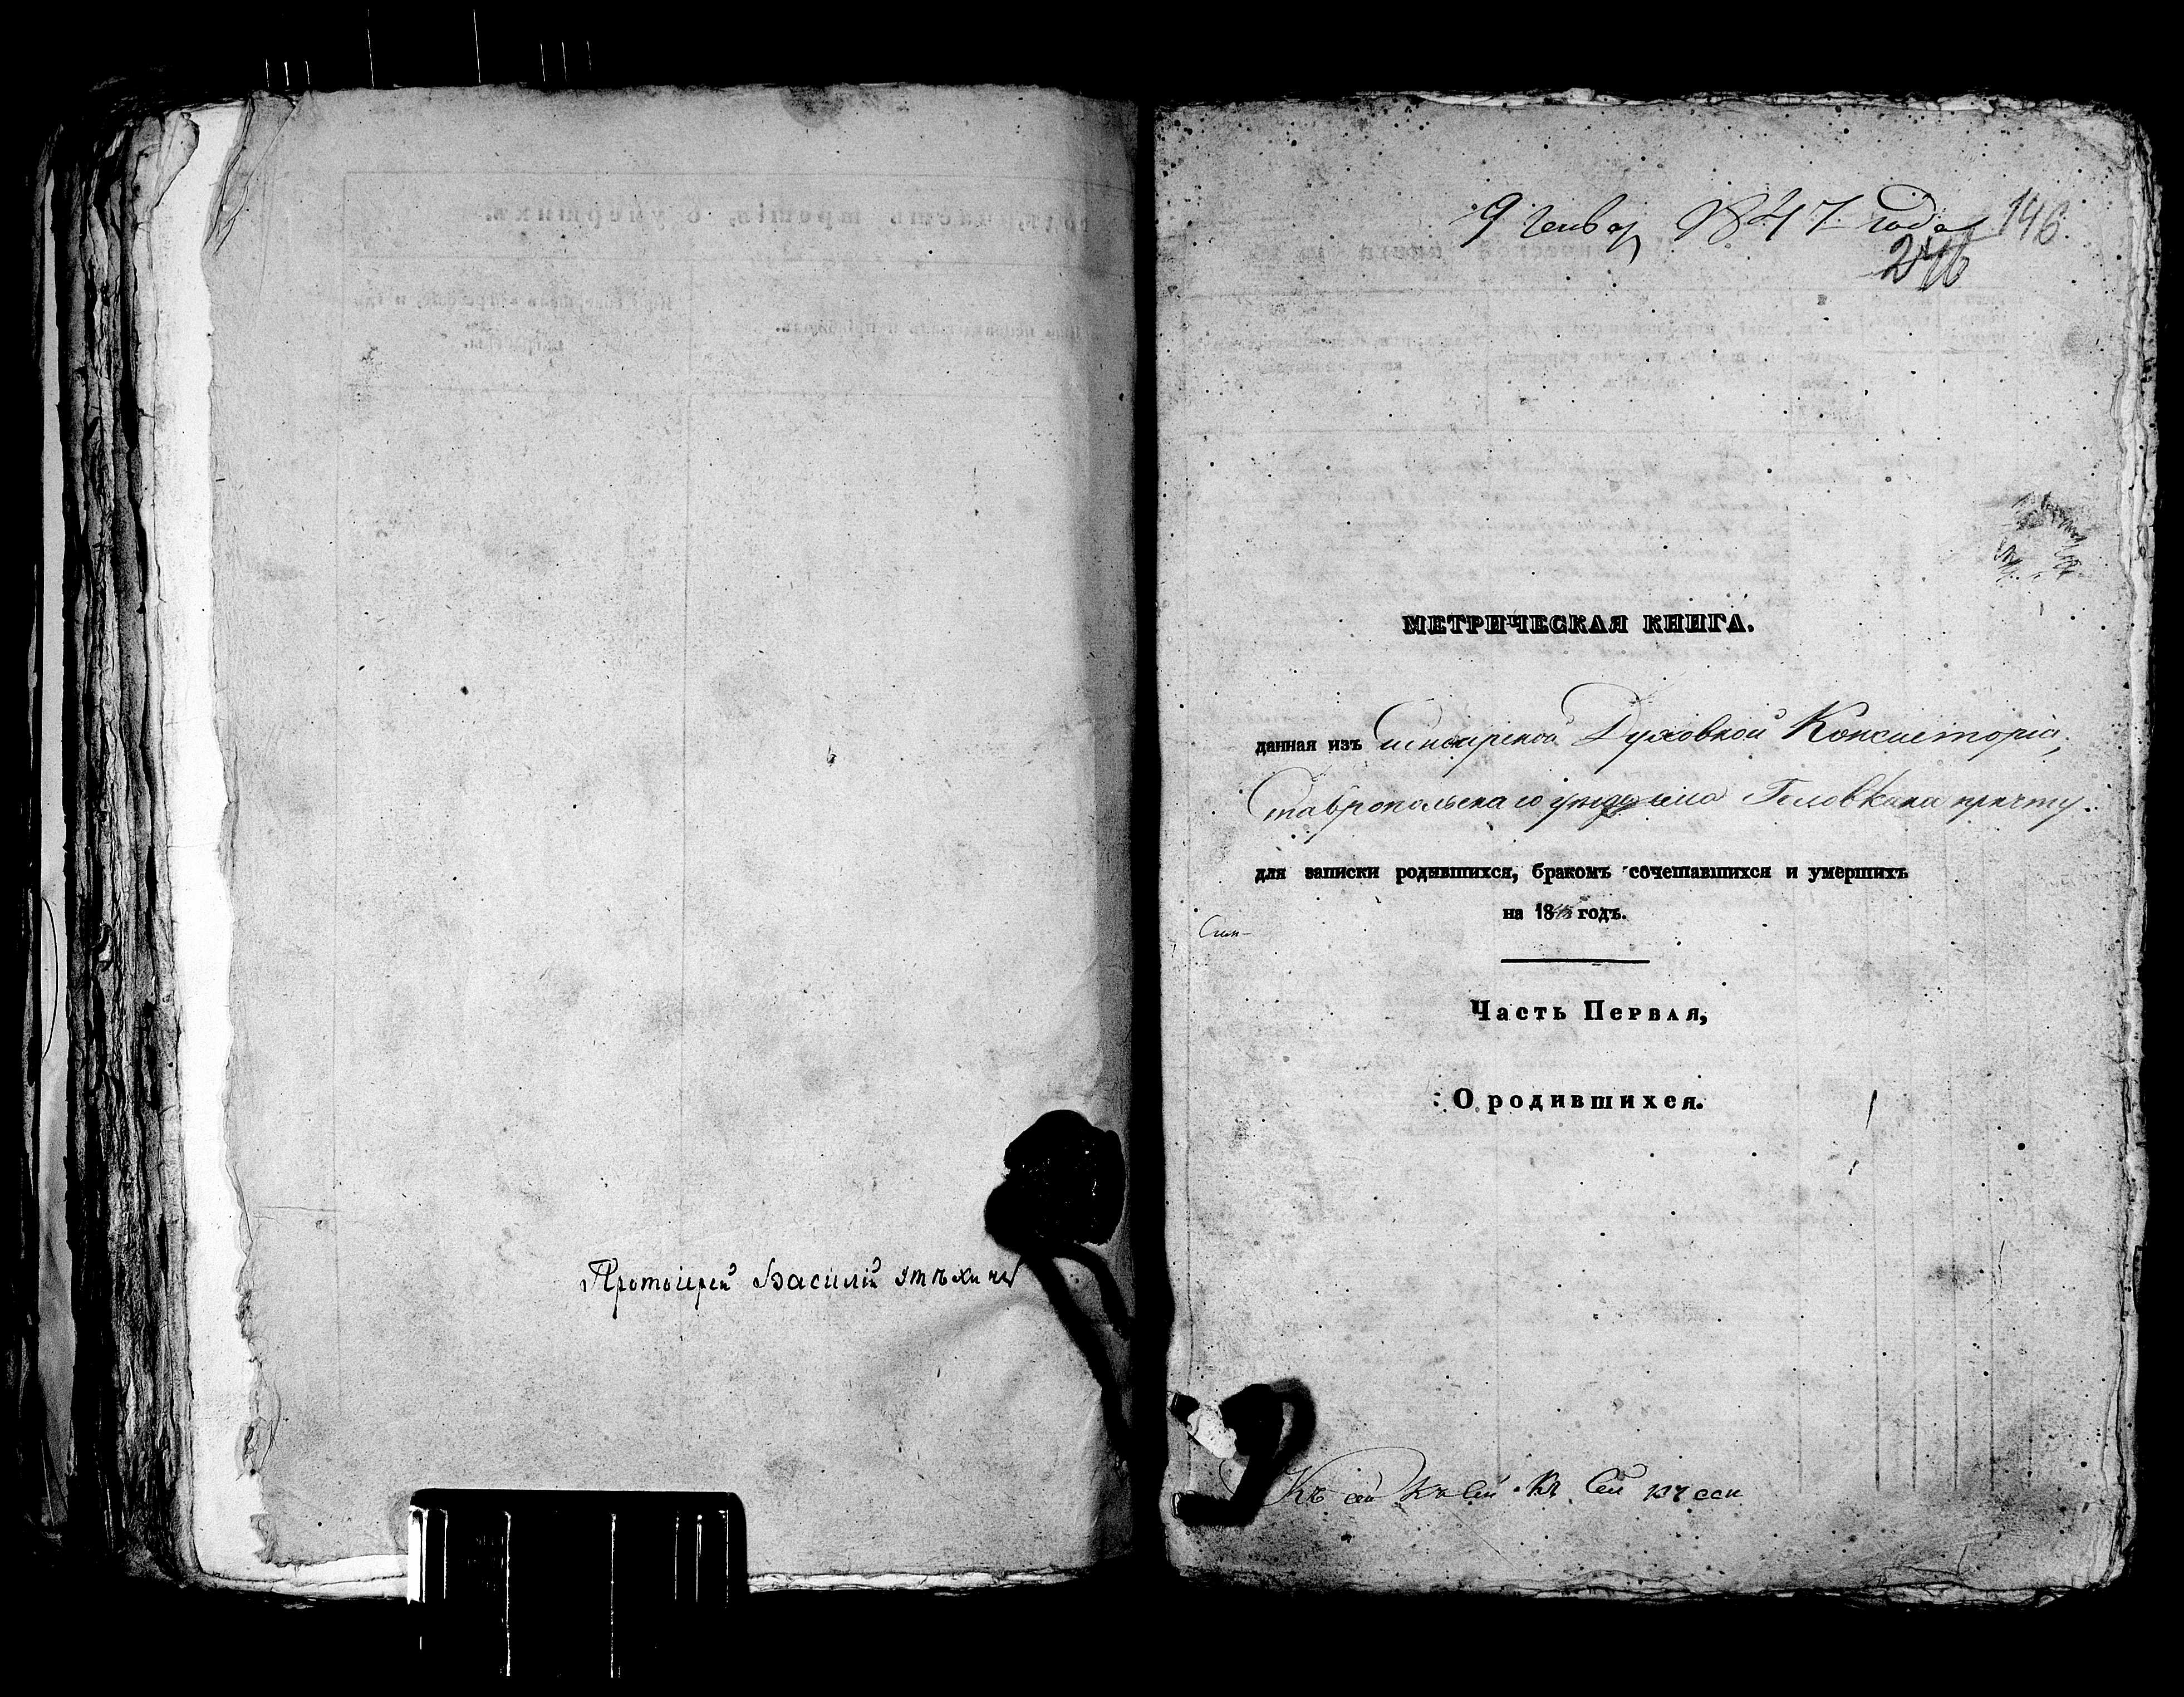 Протоіерей Василій
9 Генвар 1847 года 146.
246
МЕТРИЧЕСКАЯ КНИГА.
данная изъ Симбирской Духовной Консисторіи,
Ставропольскаго уѣзда села Головкина причту
для записки родившихся, бракомъ сочетавшихся и умершихъ
на 18 годъ.
Сим-
Часть Первая,
О родившихся.
Къ сей Къ сей Къ Сей